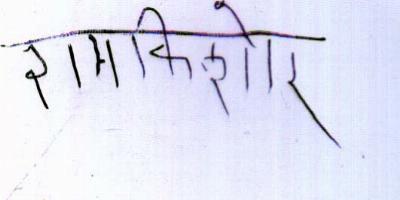 रामकिशोर